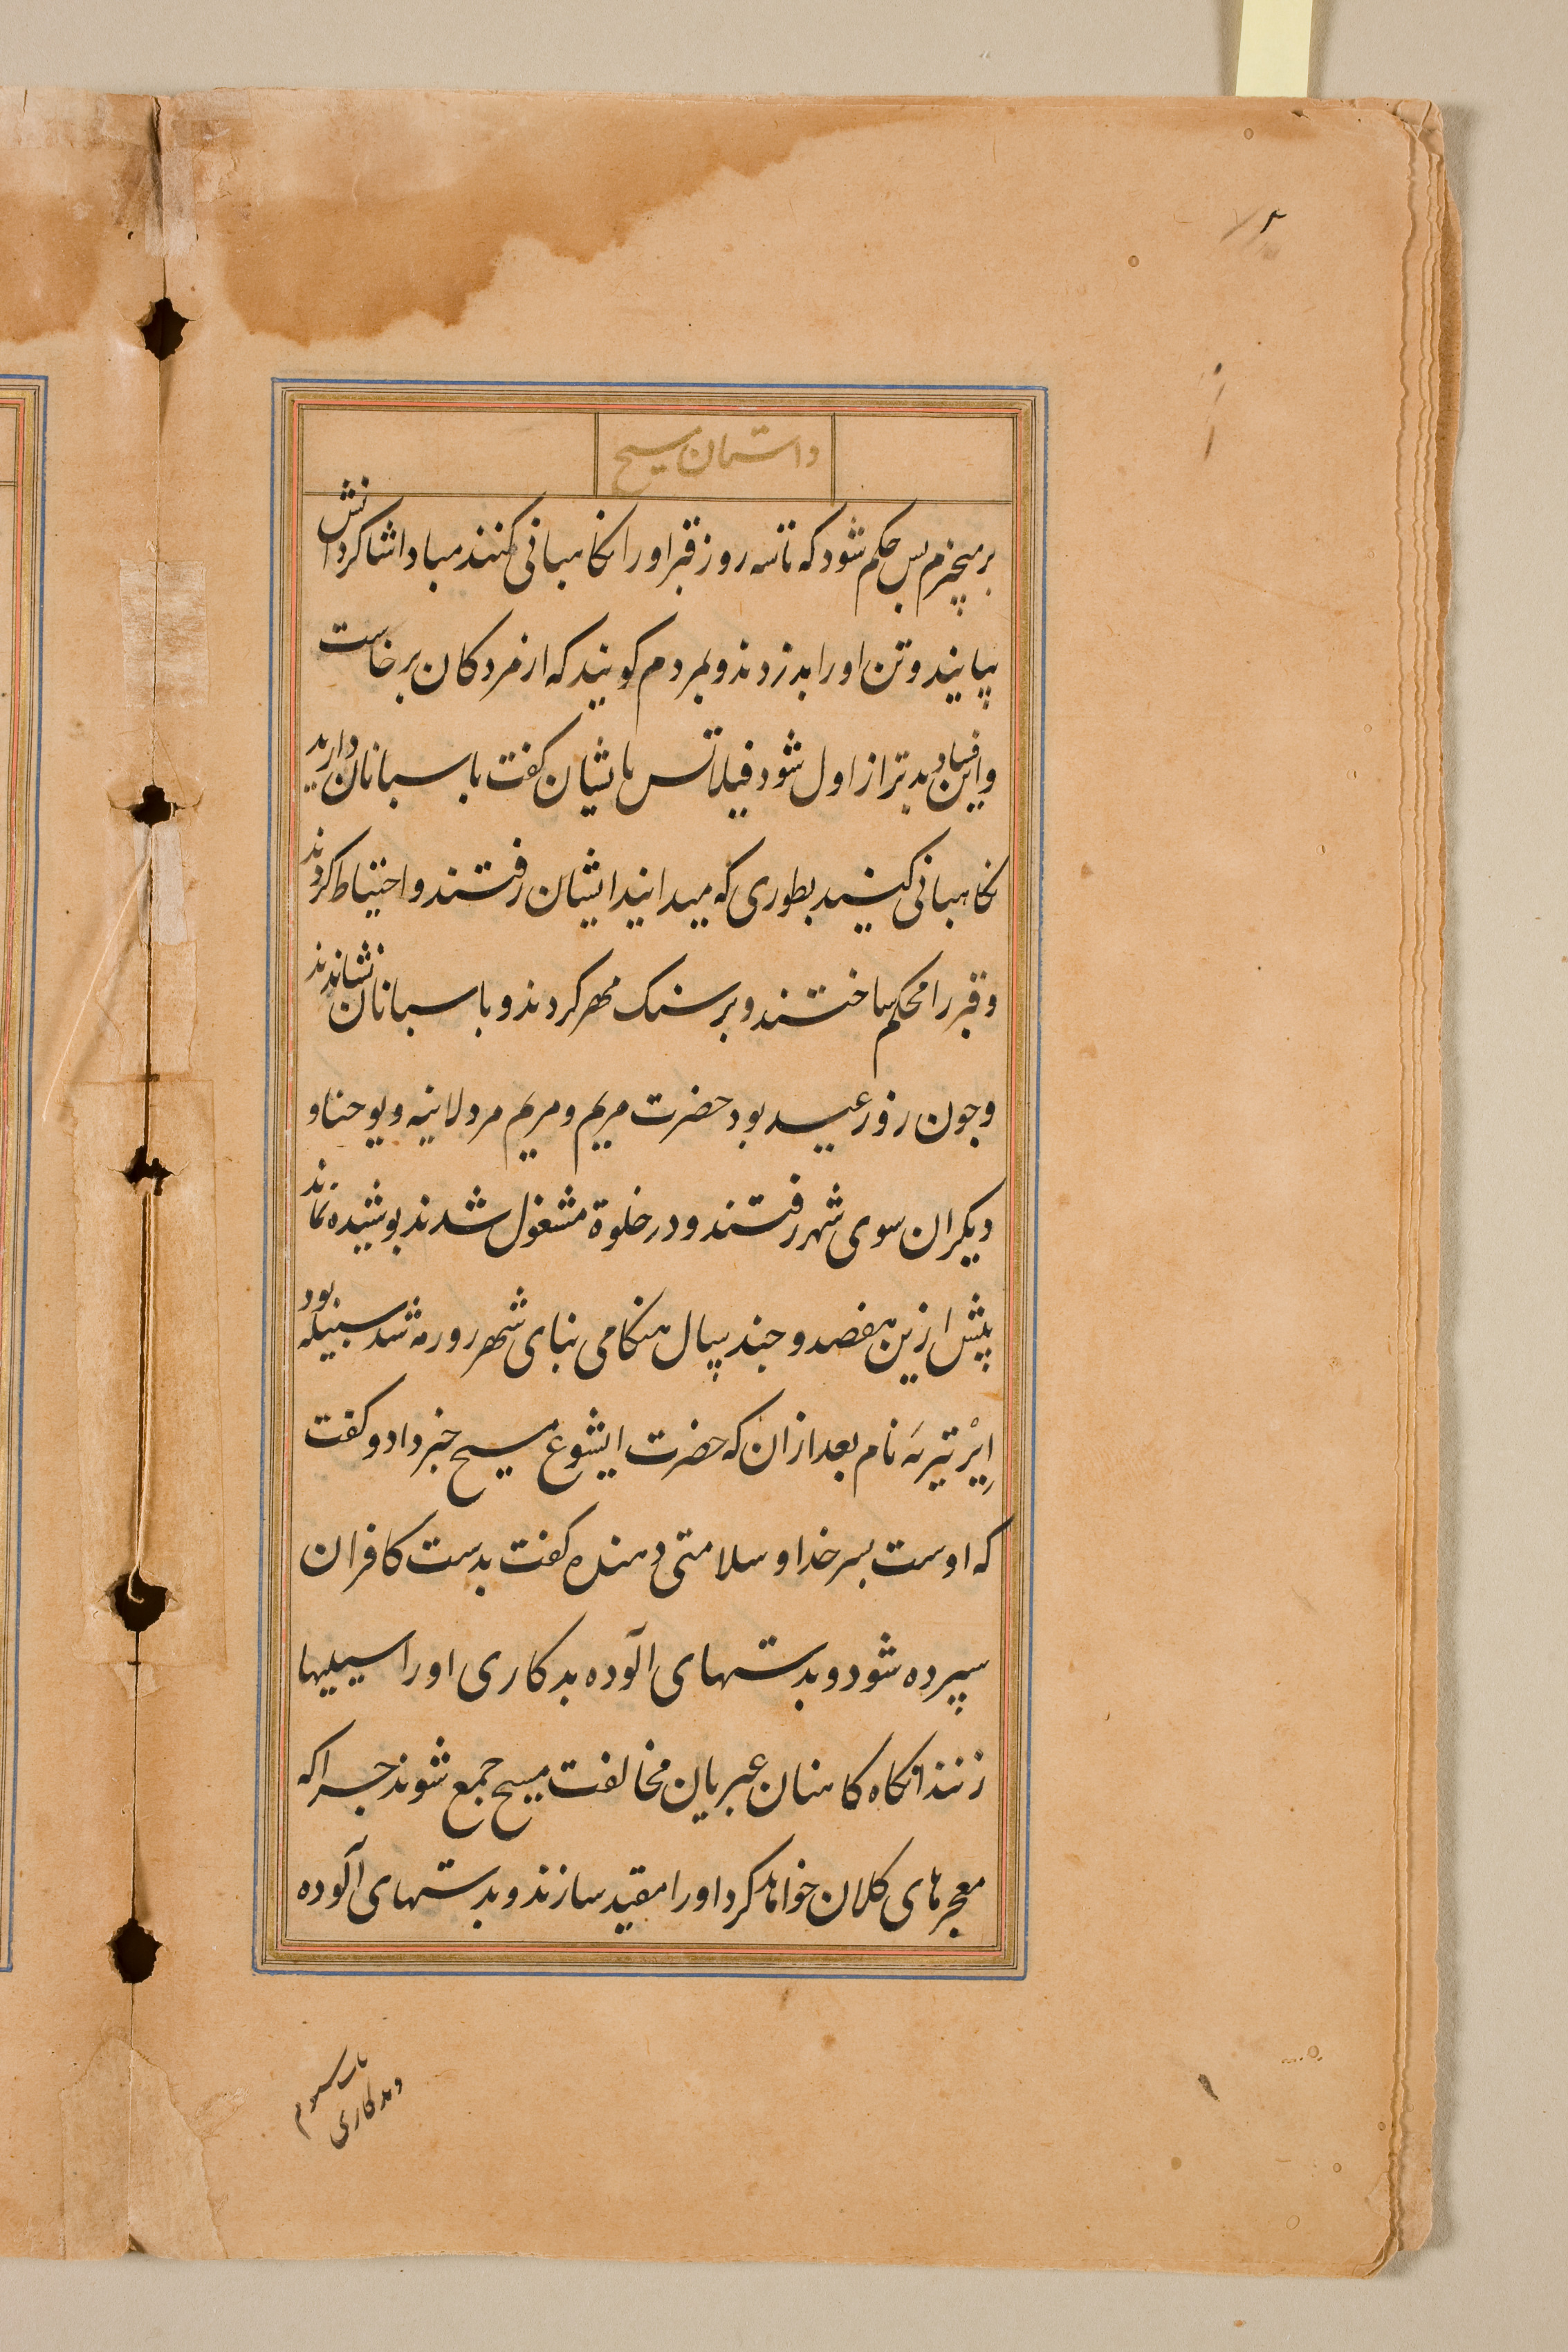 داستان مسیح
برمیخیزم پس حکم شود که تا سه روز قبر اورا نکاهبانی کنند مبادا شاکردانش
بیایند و تن اورا بدزدند و بمردم کویند که از مردکان برخاست
و این فساد بدتر از اول شود فیلاتس بایشان کفت باسبانان دارید
نکاهبانی کنید بطوری که میدانید ایشان رفتند و احتیاط کردند
و قبر را محکم ساختند و بر سنک مهر کردند و باسبانان نشاندند
و جون روز عید بود حضرت مریم و مریم مردلانیه و یوحنا و
دیکران سوی شهر رفتند و در خلوة مشغول شدند بوشیده نماند
پیش ازین هفصد و جند سال هنکامی بنای شهر رورمه شد سبیله بود
اِیرْتیریَه نام بعد ازان که حضرت ایشوع مسیح خبر داد و کفت
که اوست بسر خدا و سلامتی دهنده کفت بدست کافران
سپرده شود و بدستهای آلوده بدکاری اورا سیلیها
زنند انکاه کاهنان عبریان مخالفت مسیح جمع شوند جراکه
معجزهای کلان خواهد کرد اورا مقید سازند و بدستهای آلوده
وبدکاری